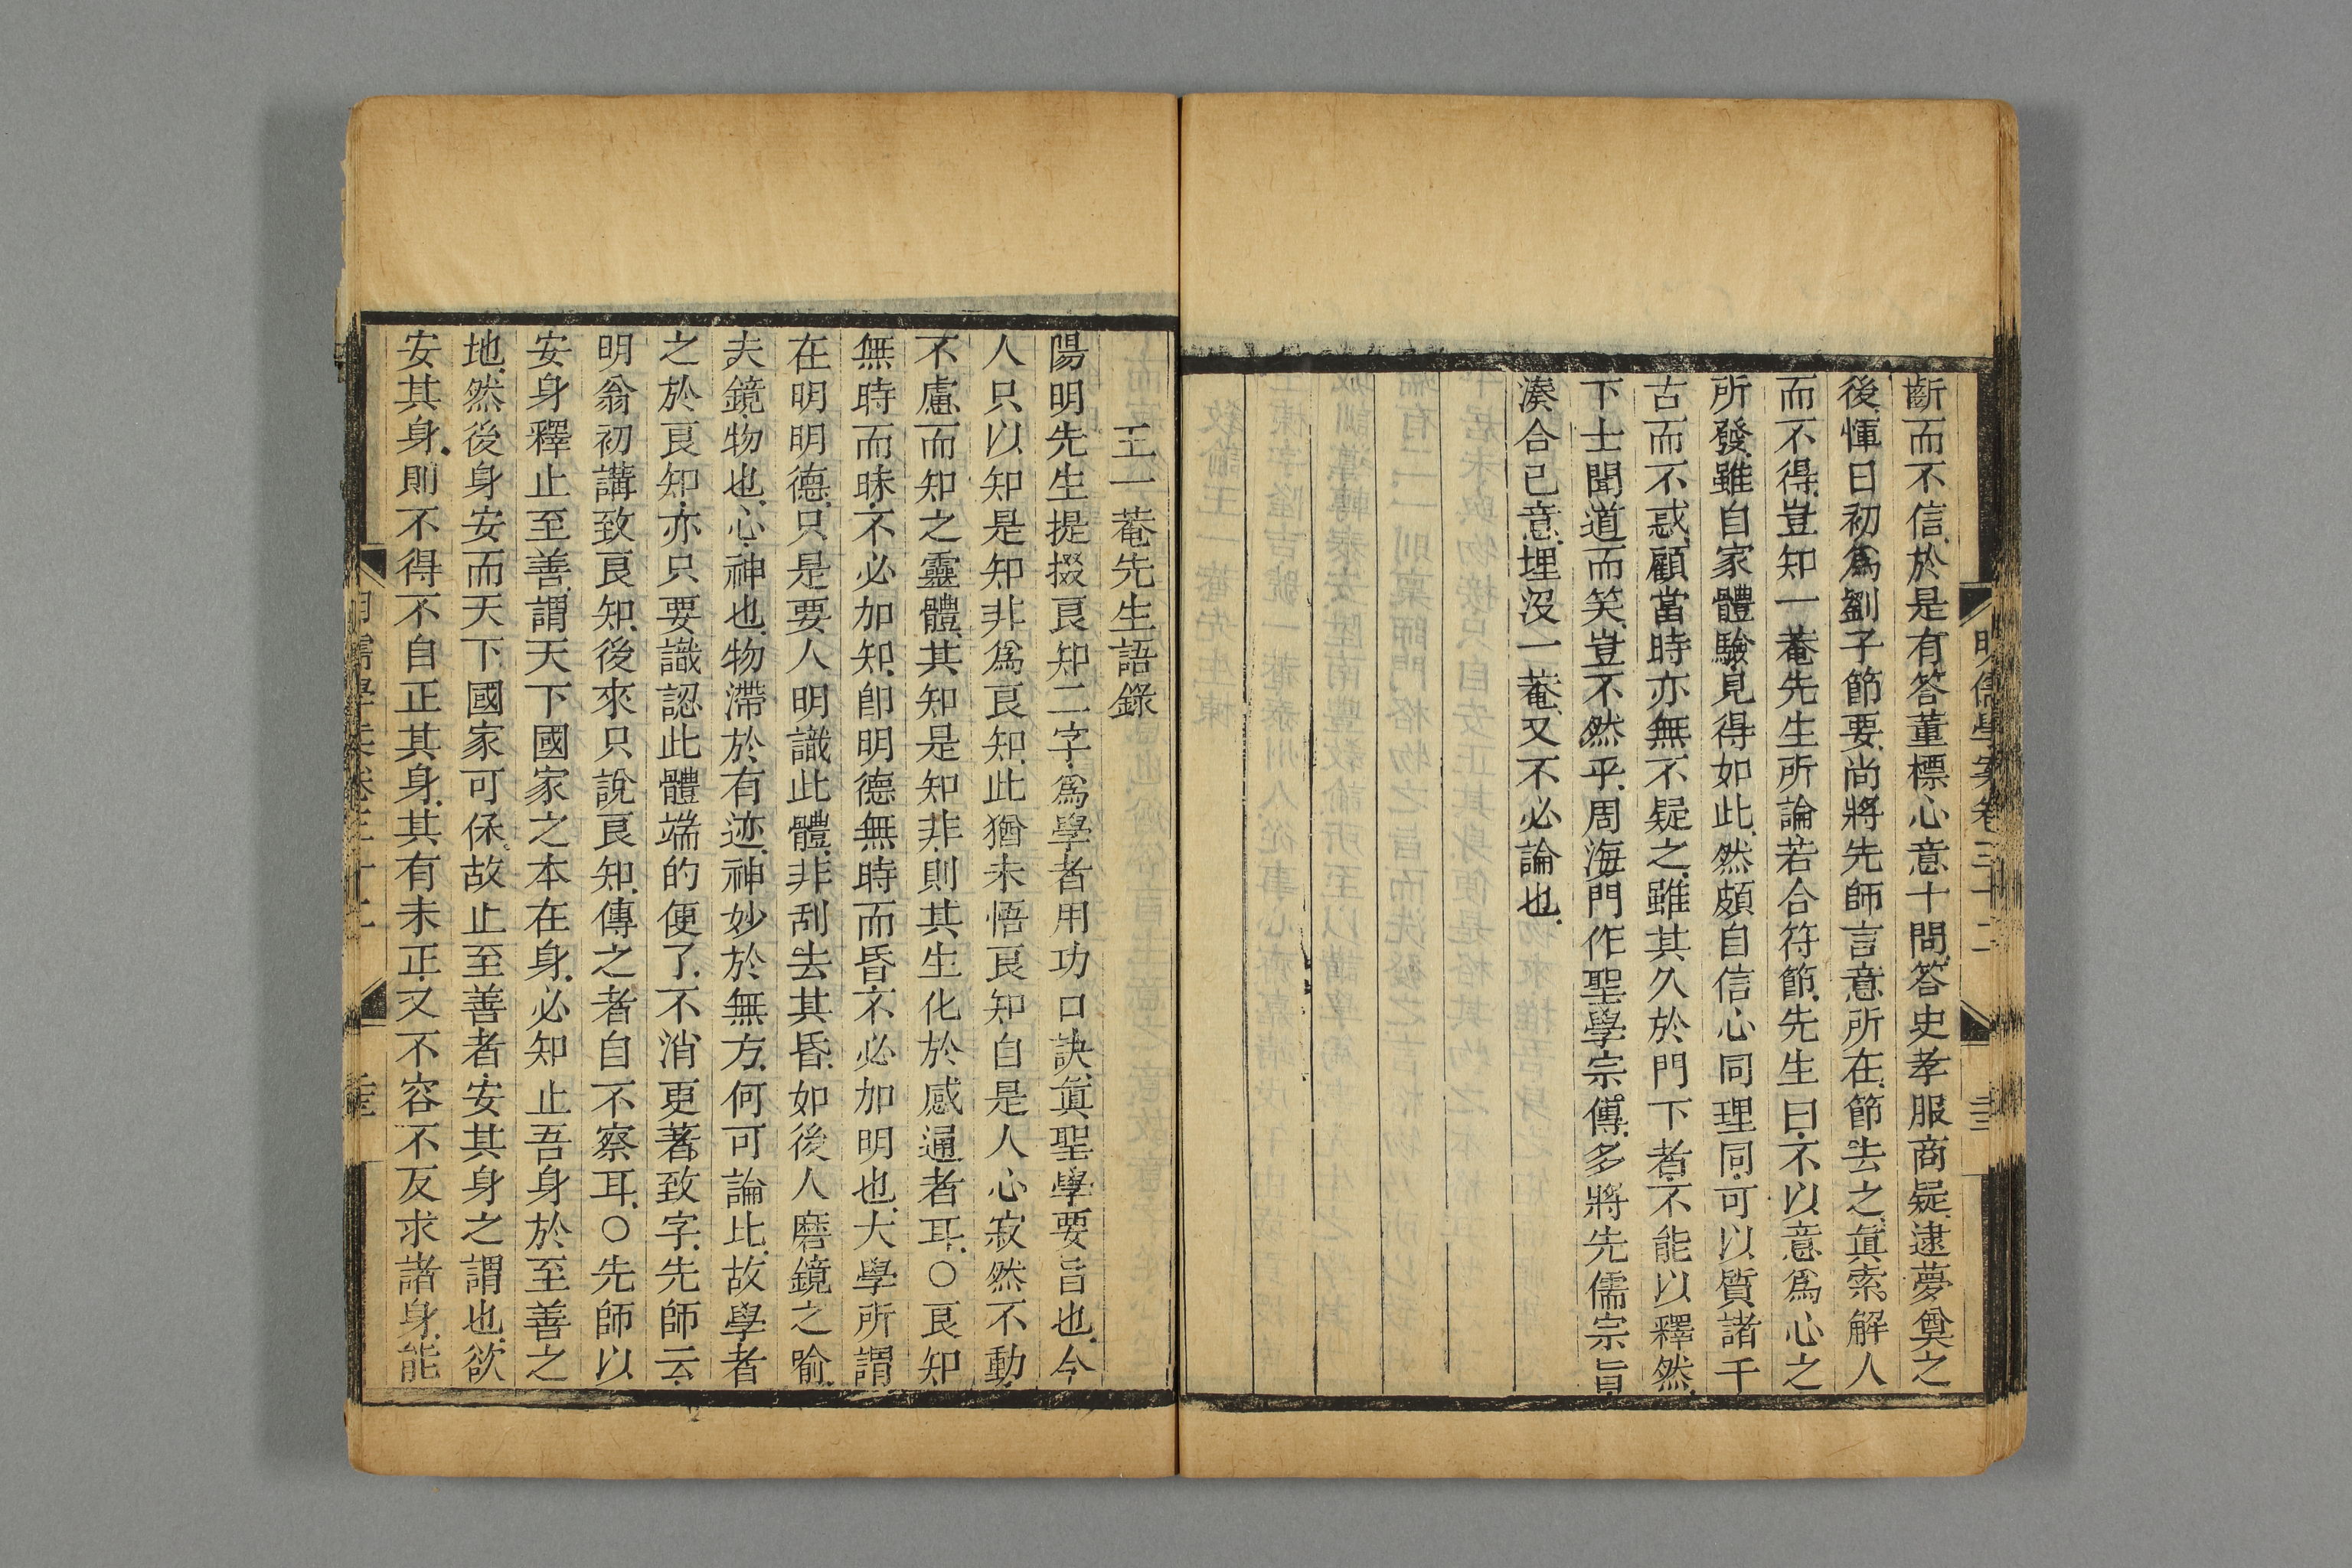 明儒學案卷三十二
斷而不信於是有答董標心意十問答史孝服商疑逮夢奠之
後惲日初爲劉子節要尚將先師言意所在節去之眞索解人
而不得豈知一菴先生所論若合符節先生曰不以意爲心之
所發雖自家體驗見得如此然頗自信心同理同可以質諸千
古而不惑顧當時亦無不疑之雖其久於門下者不能以釋然
下士聞道而笑豈不然乎周海門作聖學宗傳多將先儒宗旨
湊合已意埋沒一菴又不必論也
王一菴先生語錄
陽明先生提掇良知二字爲學者用功口訣眞聖學要旨也今
人只以知是知非爲良知此猶未悟良知自是人心寂然不動
不慮而知之靈體其知是知非則其生化於感通者耳〇良知
無時而昧不必加知卽明德無時而昏不必加明也大學所謂
在明明德只是要人明識此體非刮去其昏如後人磨鏡之喻
夫鏡物也心神也物滯於有迹神妙於無方何可論比故學者
之於良知亦只要識認此體端的便了不消更著致字先師云
明翁初講致良知後來只說良知傳之者自不察耳〇先師以
安身釋止至善謂天下國家之本在身必知止吾身於至善之
地然後身安而天下國家可保故止至善者安其身之謂也欲
安其身則不得不自正其身其有未正又不容不反求諸身能
明儒學案卷三十二